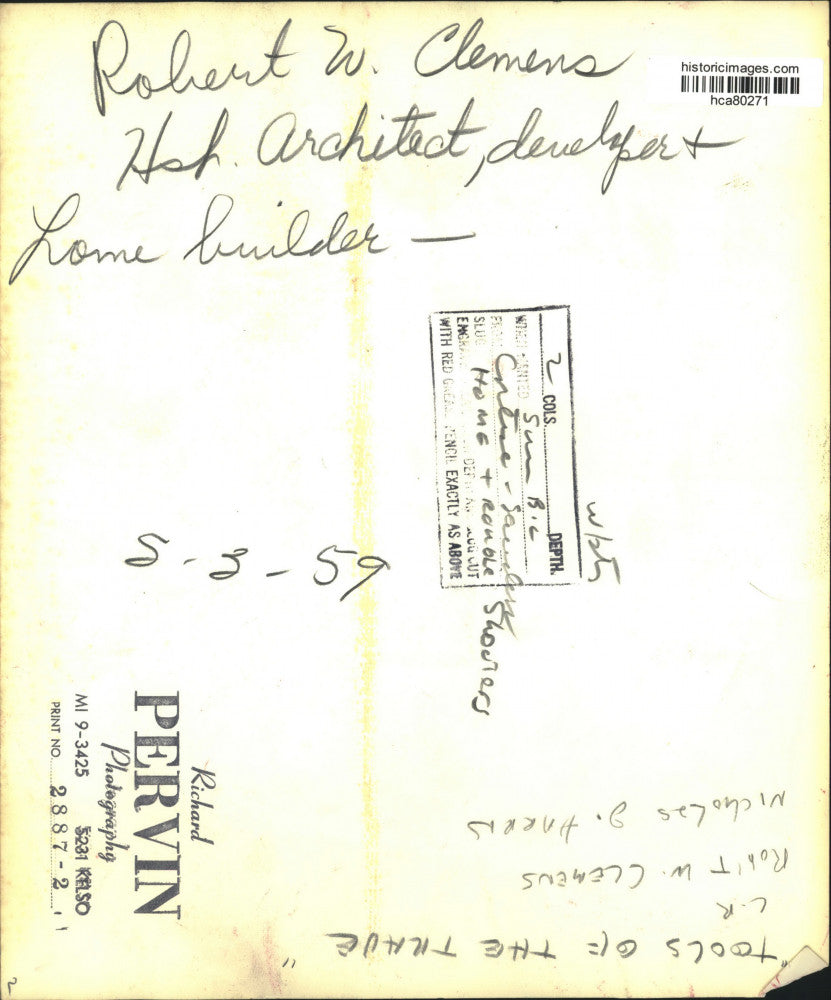 historicimages.com
hca80271
Robert W. Clemens
Hsh. Architect, developer +
home builder —
2 COLS. DEPTH.
WHEN WANTED Sun B.C
SLUG HOME + ROUBLE Showers
WITH RED GREASE PENCIL EXACTLY AS ABOVE
5-3-59
Richard
PERVIN
Photography
MI 9-3425 5231 KELSO
PRINT NO. 2887-2
"TOOLS OF THE TRADE"
L-R
Rob'T W. CLEMENS
NICHOLAS J. HARRIS
2